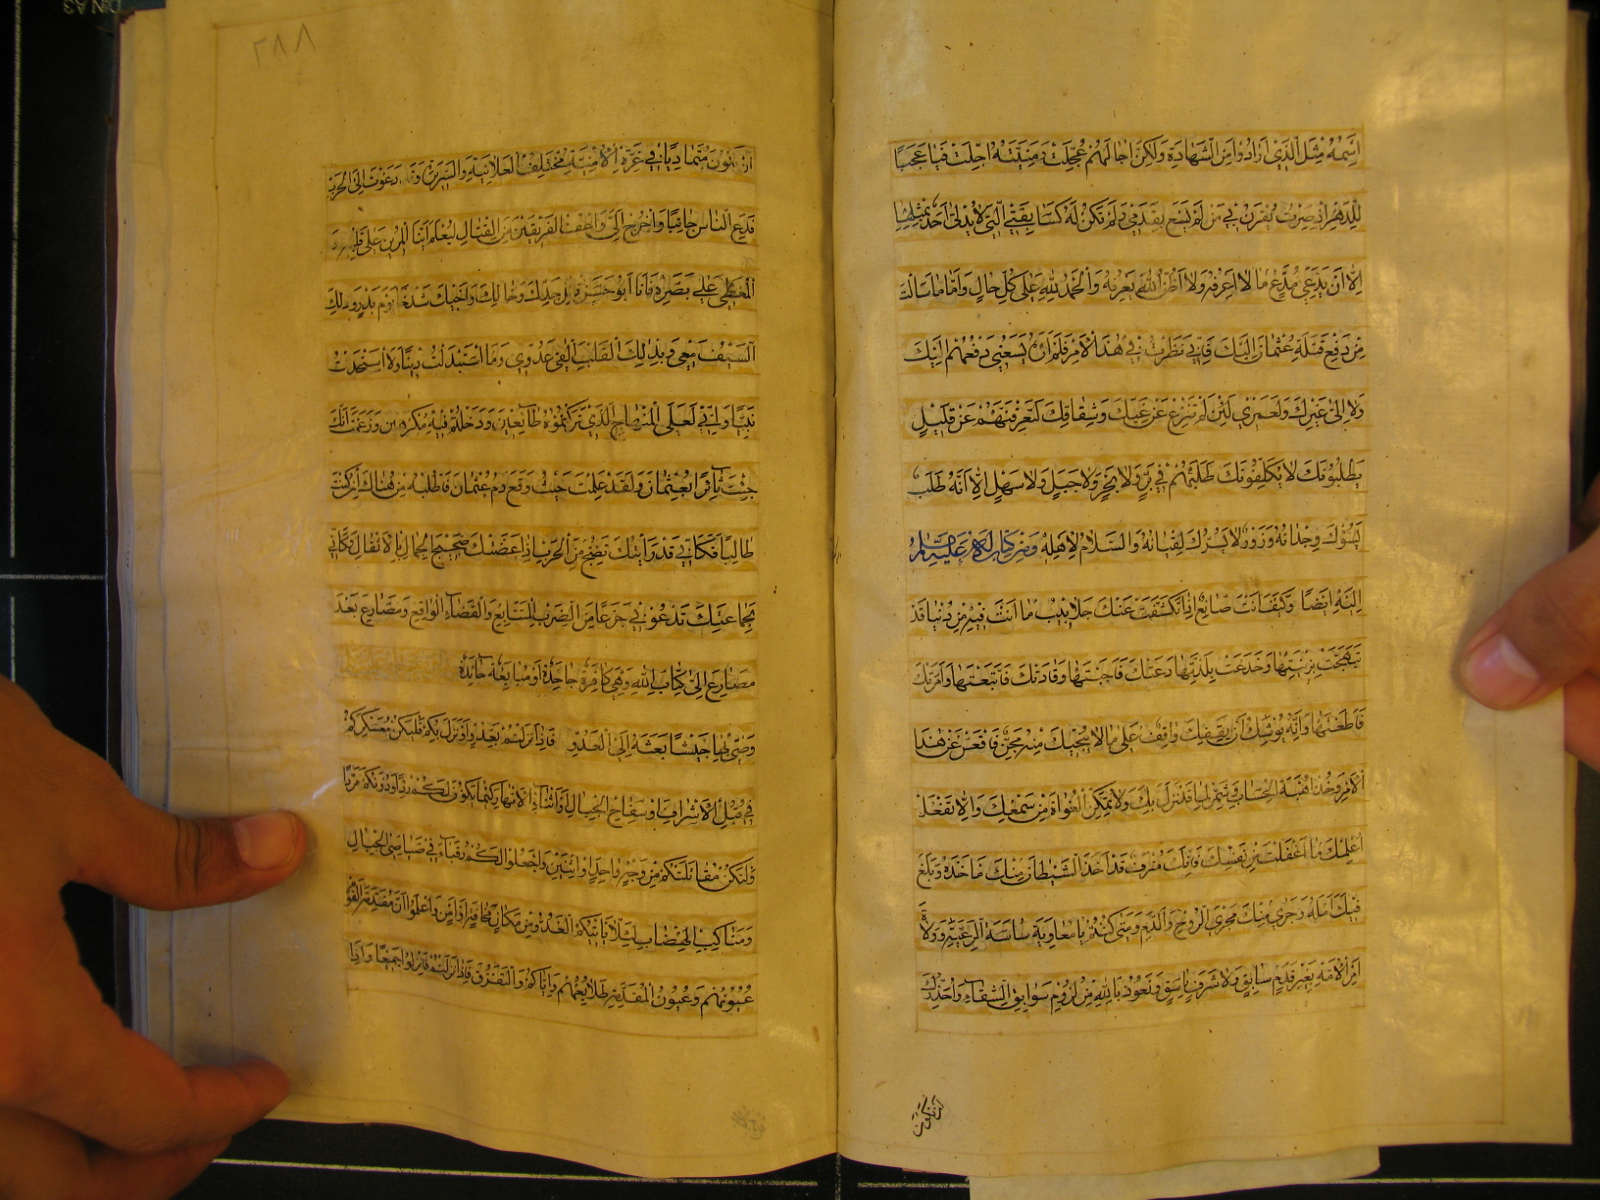 اسْمَهُ مِثْلَ الَّذِي أَرَادُوا مِنَ الشَّهَادَةِ وَلَكِنَّ آجَالَهُمْ عُجِّلَتْ وَمَنِيَّتَهُ أُجِّلَتْ فَيَا عَجَبًا
لِلدَّهْرِ إِذْ صِرْتُ يُقْرَنُ بِي مَنْ لَمْ يَسْعَ بِقَدَمِي وَلَمْ تَكُنْ لَهُ كَسَابِقَتِي الَّتِي لَا يُدْلِي أَحَدٌ بِمِثْلِهَا
إِلَّا أَنْ يَدَّعِيَ مُدَّعٍ مَا لَا أَعْرِفُهُ وَلَا أَظُنُّ اللَّهَ يَعْرِفُهُ وَالْحَمْدُ لِلَّهِ عَلَى كُلِّ حَالٍ وَأَمَّا مَا سَأَلْتَ
مِنْ دَفْعِ قَتَلَةِ عُثْمَانَ إِلَيْكَ فَإِنِّي نَظَرْتُ فِي هَذَا الْأَمْرِ فَلَمْ أَرَهُ يَسَعُنِي دَفْعُهُمْ إِلَيْكَ
وَلَا إِلَى غَيْرِكَ وَلَعَمْرِي لَئِنْ لَمْ تَنْزِعْ عَنْ غَيِّكَ وَشِقَاقِكَ لَتَعْرِفَنَّهُمْ عَنْ قَلِيلٍ
يَطْلُبُونَكَ لَا يُكَلِّفُونَكَ طَلَبَهُمْ فِي بَرٍّ وَلَا بَحْرٍ وَلَا جَبَلٍ وَلَا سَهْلٍ إِلَّا أَنَّهُ طَلَبٌ
يَسُوؤُكَ وِجْدَانُهُ وَزَوْرٌ لَا يَسُرُّكَ لُقْيَانُهُ وَالسَّلَامُ لِأَهْلِهِ وَمِنْ كِتَابٍ لَهُ عَلَيْهِ السَّلَامُ
إِلَيْهِ أَيْضًا وَكَيْفَ أَنْتَ صَانِعٌ إِذَا تَكَشَّفَتْ عَنْكَ جَلَابِيبُ مَا أَنْتَ فِيهِ مِنْ دُنْيَا قَدْ
تَبَهَّجَتْ بِزِينَتِهَا وَخَدَعَتْ بِلَذَّتِهَا دَعَتْكَ فَأَجَبْتَهَا وَقَادَتْكَ فَاتَّبَعْتَهَا وَأَمَرَتْكَ
فَأَطَعْتَهَا وَإِنَّهُ يُوشِكُ أَنْ يَقِفَكَ وَاقِفٌ عَلَى مَا لَا يُنْجِيكَ مِنْهُ مِجَنٌّ فَاقْعَسْ عَنْ هَذَا
الْأَمْرِ وَخُذْ أُهْبَةَ الْحِسَابِ وَشَمِّرْ لِمَا قَدْ نَزَلَ بِكَ وَلَا تُمَكِّنِ الْغُوَاةَ مِنْ سَمْعِكَ وَإِلَّا تَفْعَلْ
أُعْلِمْكَ مَا أَغْفَلْتَ مِنْ نَفْسِكَ فَإِنَّكَ مُتْرَفٌ قَدْ أَخَذَ الشَّيْطَانُ مِنْكَ مَأْخَذَهُ وَبَلَغَ
فِيكَ أَمَلَهُ وَجَرَى مِنْكَ مَجْرَى الرُّوحِ وَالدَّمِ وَمَتَى كُنْتُمْ يَا مُعَاوِيَةُ سَاسَةَ الرَّعِيَّةِ وَوُلَاةَ
أَمْرِ الْأُمَّةِ بِغَيْرِ قَدَمٍ سَابِقٍ وَلَا شَرَفٍ بَاسِقٍ وَنَعُوذُ بِاللَّهِ مِنْ لُزُومِ سَوَابِقِ الشَّقَاءِ وَأُحَذِّرُكَ
أن تكون
٢٨٨
أَنْ تَكُونَ مُتَمَادِيًا فِي غِرَّةِ الْأُمْنِيَّةِ مُخْتَلِفَ الْعَلَانِيَةِ وَالسَّرِيرَةِ وَقَدْ دَعَوْتَ إِلَى الْحَرْبِ
فَدَعِ النَّاسَ جَانِبًا وَاخْرُجْ إِلَيَّ وَأَعْفِ الْفَرِيقَيْنِ مِنَ الْقِتَالِ لِيُعْلَمَ أَيُّنَا الْمَرِينُ عَلَى قَلْبِهِ وَ
الْمُغَطَّى عَلَى بَصَرِهِ فَأَنَا أَبُو حَسَنٍ قَاتِلُ جَدِّكَ وَخَالِكَ وَأَخِيكَ شَدْخًا يَوْمَ بَدْرٍ وَذَلِكَ
السَّيْفُ مَعِي وَبِذَلِكَ الْقَلْبِ أَلْقَى عَدُوِّي وَمَا اسْتَبْدَلْتُ دِينًا وَلَا اسْتَحْدَثْتُ
نَبِيًّا وَإِنِّي لَعَلَى الْمِنْهَاجِ الَّذِي تَرَكْتُمُوهُ طَائِعِينَ وَدَخَلْتُمْ فِيهِ مُكْرَهِينَ وَزَعَمْتَ أَنَّكَ
جِئْتَ ثَائِرًا بِعُثْمَانَ وَلَقَدْ عَلِمْتَ حَيْثُ وَقَعَ دَمُ عُثْمَانَ فَاطْلُبْهُ مِنْ هُنَاكَ إِنْ كُنْتَ
طَالِبًا فَكَأَنِّي قَدْ رَأَيْتُكَ تَضِجُّ مِنَ الْحَرْبِ إِذَا عَضَّتْكَ ضَجِيجَ الْجِمَالِ بِالْأَثْقَالِ وَكَأَنِّي
بِجَمَاعَتِكَ تَدْعُونِي جَزَعًا مِنَ الضَّرْبِ الْمُتَتَابِعِ وَالْقَضَاءِ الْوَاقِعِ وَمَصَارِعَ بَعْدَ
مَصَارِعَ إِلَى كِتَابِ اللَّهِ وَهِيَ كَافِرَةٌ جَاحِدَةٌ أَوْ مُبَايِعَةٌ حَائِدَةٌ
وَصَّى بِهَا جَيْشًا بَعَثَهُ إِلَى الْعَدُوِّ فَإِذَا نَزَلْتُمْ بِعَدُوٍّ أَوْ نَزَلَ بِكُمْ فَلْيَكُنْ مُعَسْكَرُكُمْ
فِي قُبُلِ الْأَشْرَافِ أَوْ سِفَاحِ الْجِبَالِ أَوْ أَثْنَاءِ الْأَنْهَارِ كَيْمَا يَكُونَ لَكُمْ رِدْءًا وَدُونَكُمْ مَرَدًّا
وَلْتَكُنْ مُقَاتَلَتُكُمْ مِنْ وَجْهٍ وَاحِدٍ أَوِ اثْنَيْنِ وَاجْعَلُوا لَكُمْ رُقَبَاءَ فِي صَيَاصِي الْجِبَالِ
وَمَنَاكِبِ الْهِضَابِ لِئَلَّا يَأْتِيَكُمُ الْعَدُوُّ مِنْ مَكَانِ مَخَافَةٍ أَوْ أَمْنٍ وَاعْلَمُوا أَنَّ مُقَدِّمَةَ الْقَوْمِ
عُيُونُهُمْ وَعُيُونُ الْمُقَدِّمَةِ طَلَائِعُهُمْ وَإِيَّاكُمْ وَالتَّفَرُّقَ فَإِذَا نَزَلْتُمْ فَانْزِلُوا جَمِيعًا وَإِذَا